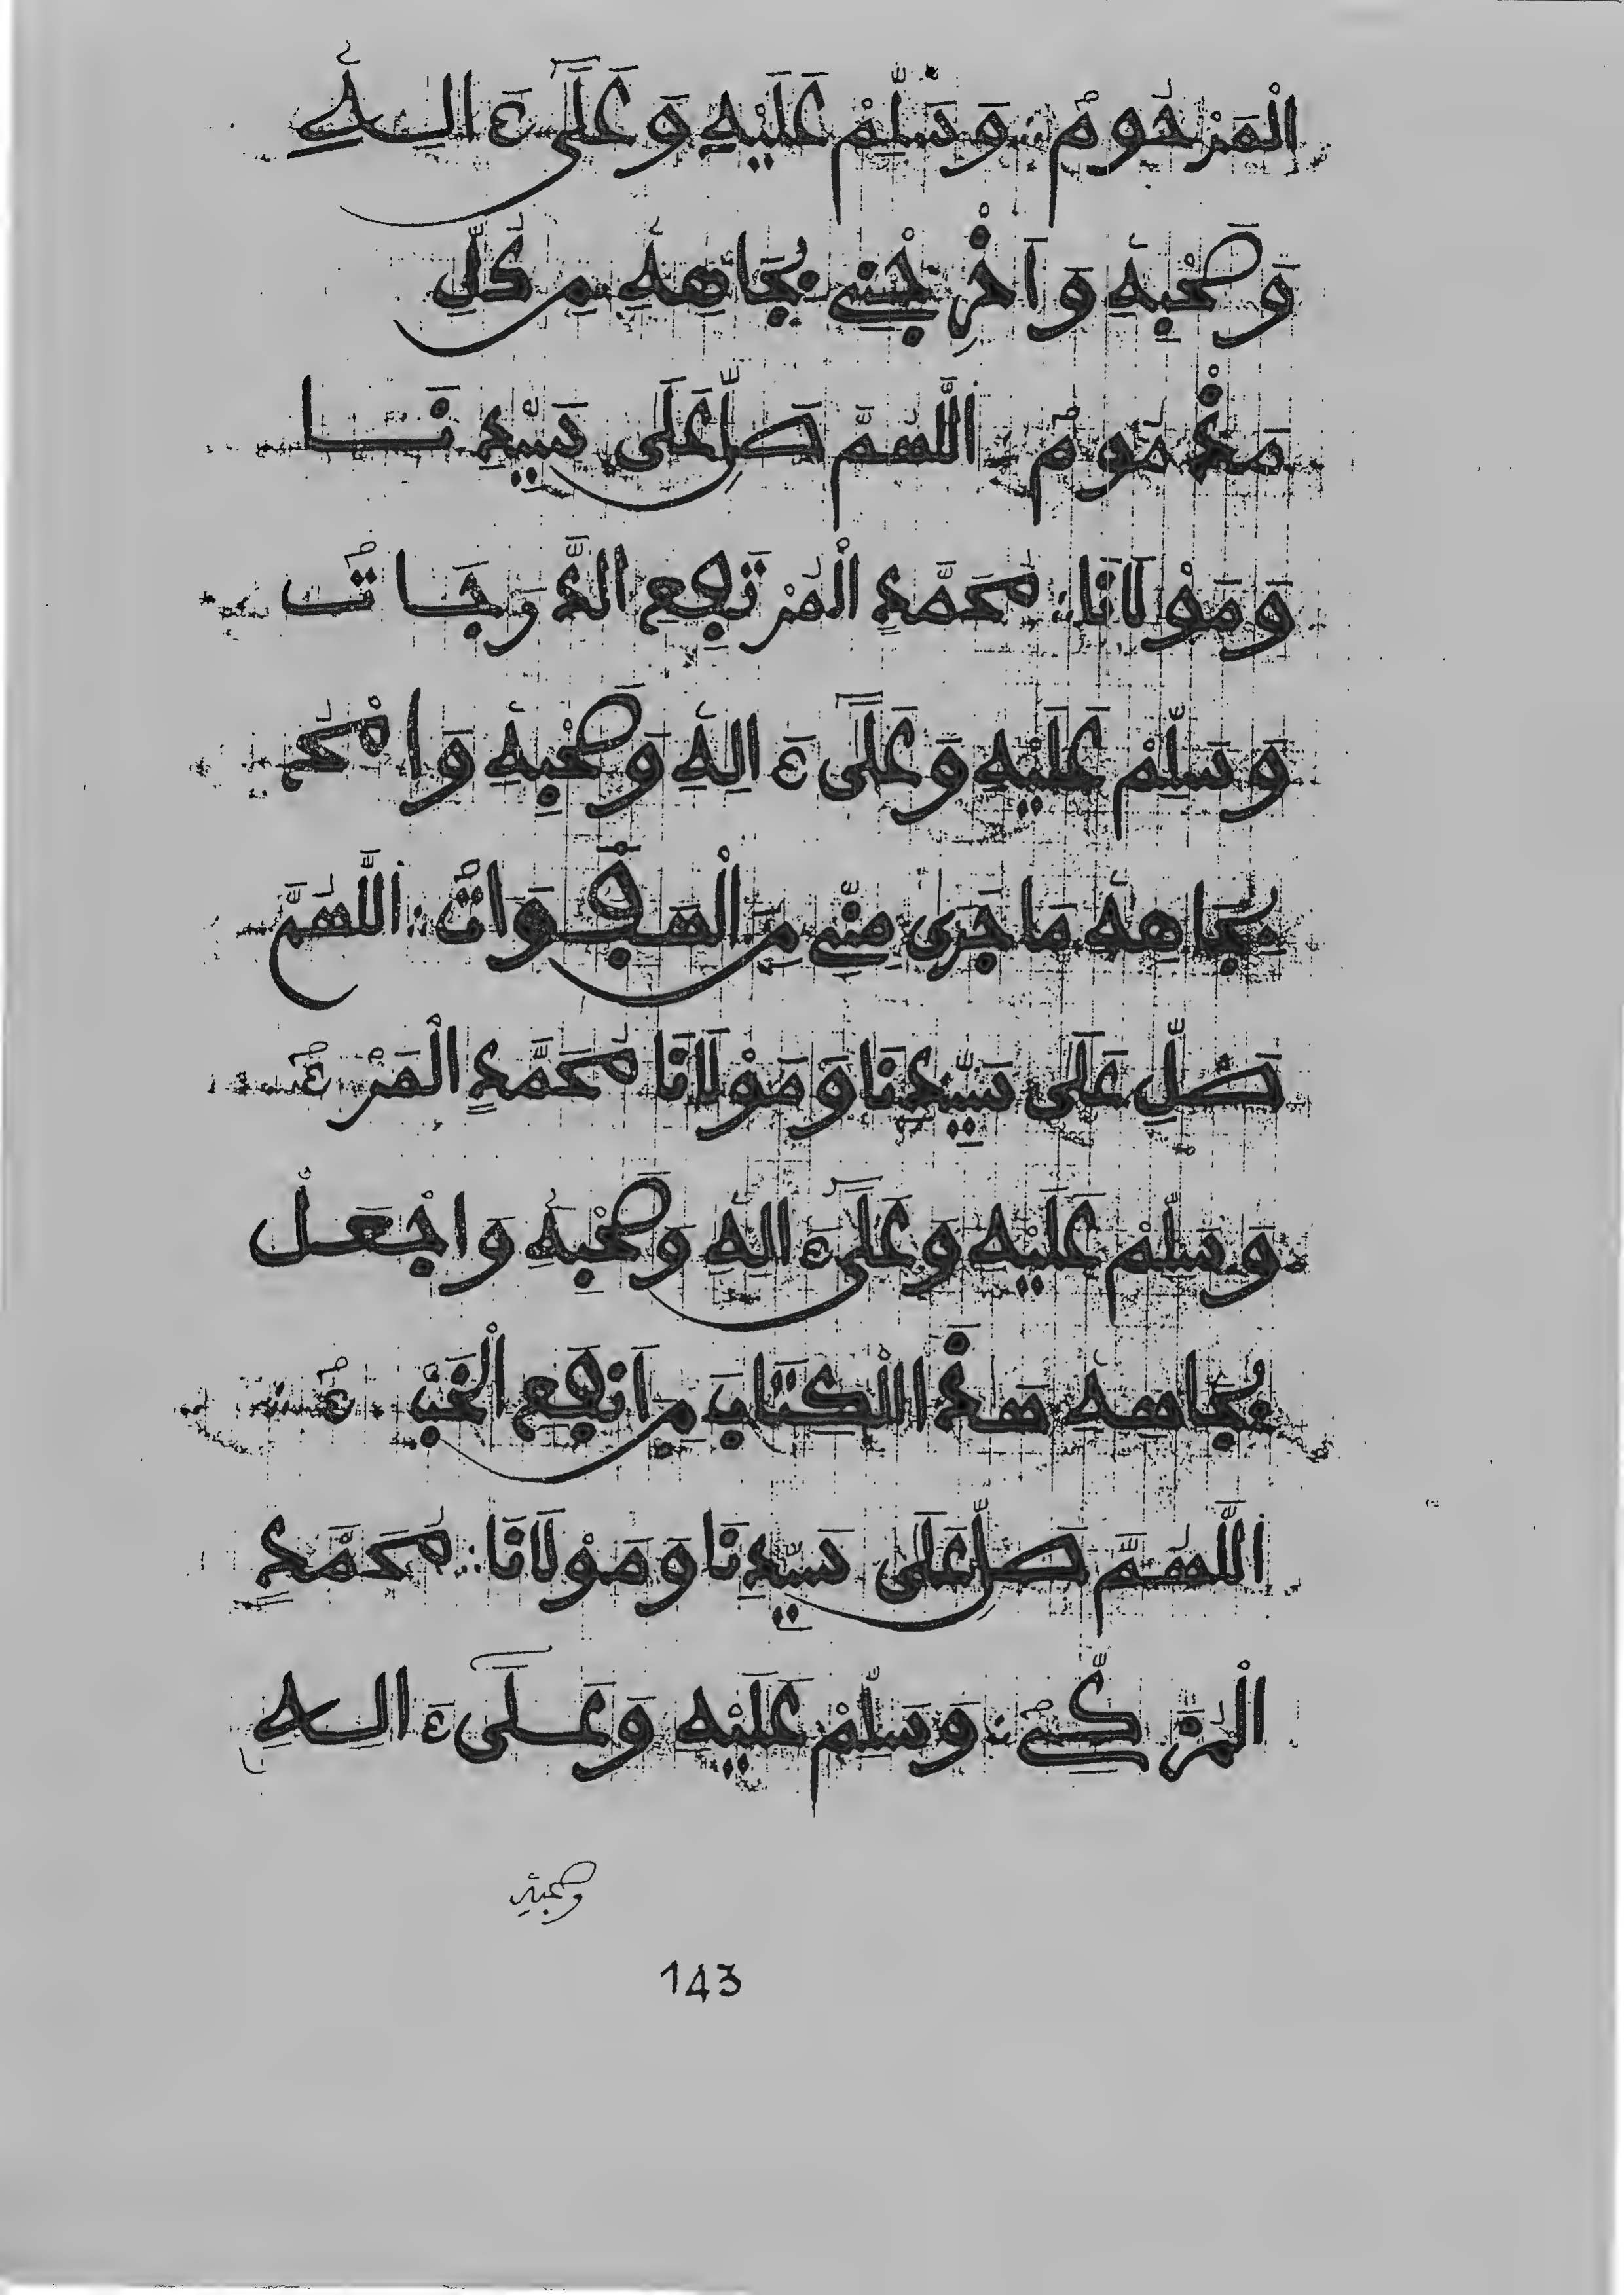 الْمَرْحُومِ وَسَلِّمْ عَلَيْهِ وَعَلَىٰٓ ءَالِهِۦ
وَصَحْبِهِۦ وَأَخْرِجْنِي بِجَاهِهِۦ مِن كُلِّ
مَغْمُومٍ اللَّهُمَّ صَلِّ عَلَى سَيِّدِنَا
وَمَوْلَانَا مُحَمَّدٍ الْمُرْتَفِعِ الدَّرَجَاتِ
وَسَلِّمْ عَلَيْهِ وَعَلَىٰٓ ءَالِهِۦ وَصَحْبِهِۦ وَامْحُ
بِجَاهِهِۦ مَا جَرَى مِنِّي مِنَ الْهَفَوَاتِ اللَّهُمَّ
صَلِّ عَلَى سَيِّدِنَا وَمَوْلَانَا مُحَمَّدٍ الْمَرْءِ
وَسَلِّمْ عَلَيْهِ وَعَلَىٰٓ ءَالِهِۦ وَصَحْبِهِۦ وَاجْعَلْ
بِجَاهِهِۦ هَذَا الْكِتَابَ مِنْ أَنْفَعِ الْخَبْءِ
اللَّهُمَّ صَلِّ عَلَى سَيِّدِنَا وَمَوْلَانَا مُحَمَّدٍ
الْمُزَكِّي وَسَلِّمْ عَلَيْهِ وَعَلَىٰٓ ءَالِهِ
وصحبه
143